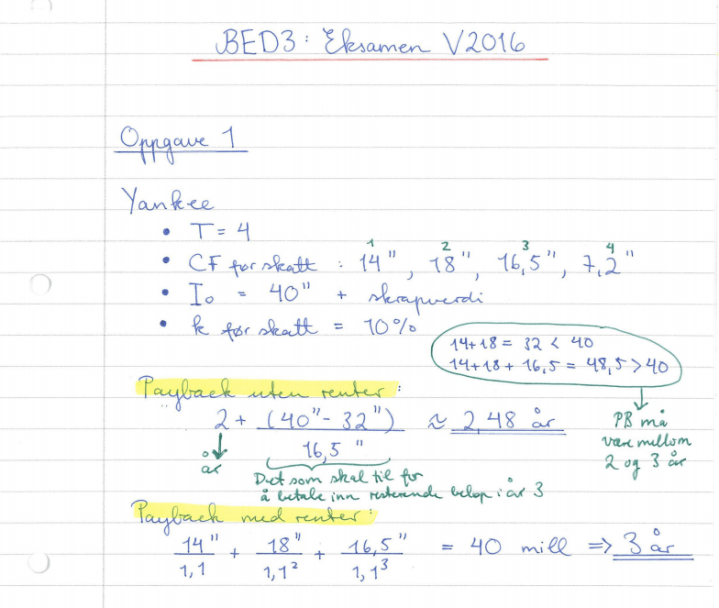 BED3: Eksamen V2016
Oppgave 1
Yankee
• T = 4
1 2 3 4
• CF før skatt : 14", 18", 16,5", 7,2"
• I₀ = 40" + skrapverdi
• k før skatt = 10%
14+18 = 32 < 40
14+18+16,5 = 48,5 > 40
Payback uten renter:
2 + (40"-32") ≈ 2,48 år
16,5"
år
PB må
være mellom
2 og 3 år
Det som skal til for
å betale inn resterende beløp i år 3
Payback med renter:
14" + 18" + 16,5" = 40 mill => 3 år
1,1 1,1² 1,1³